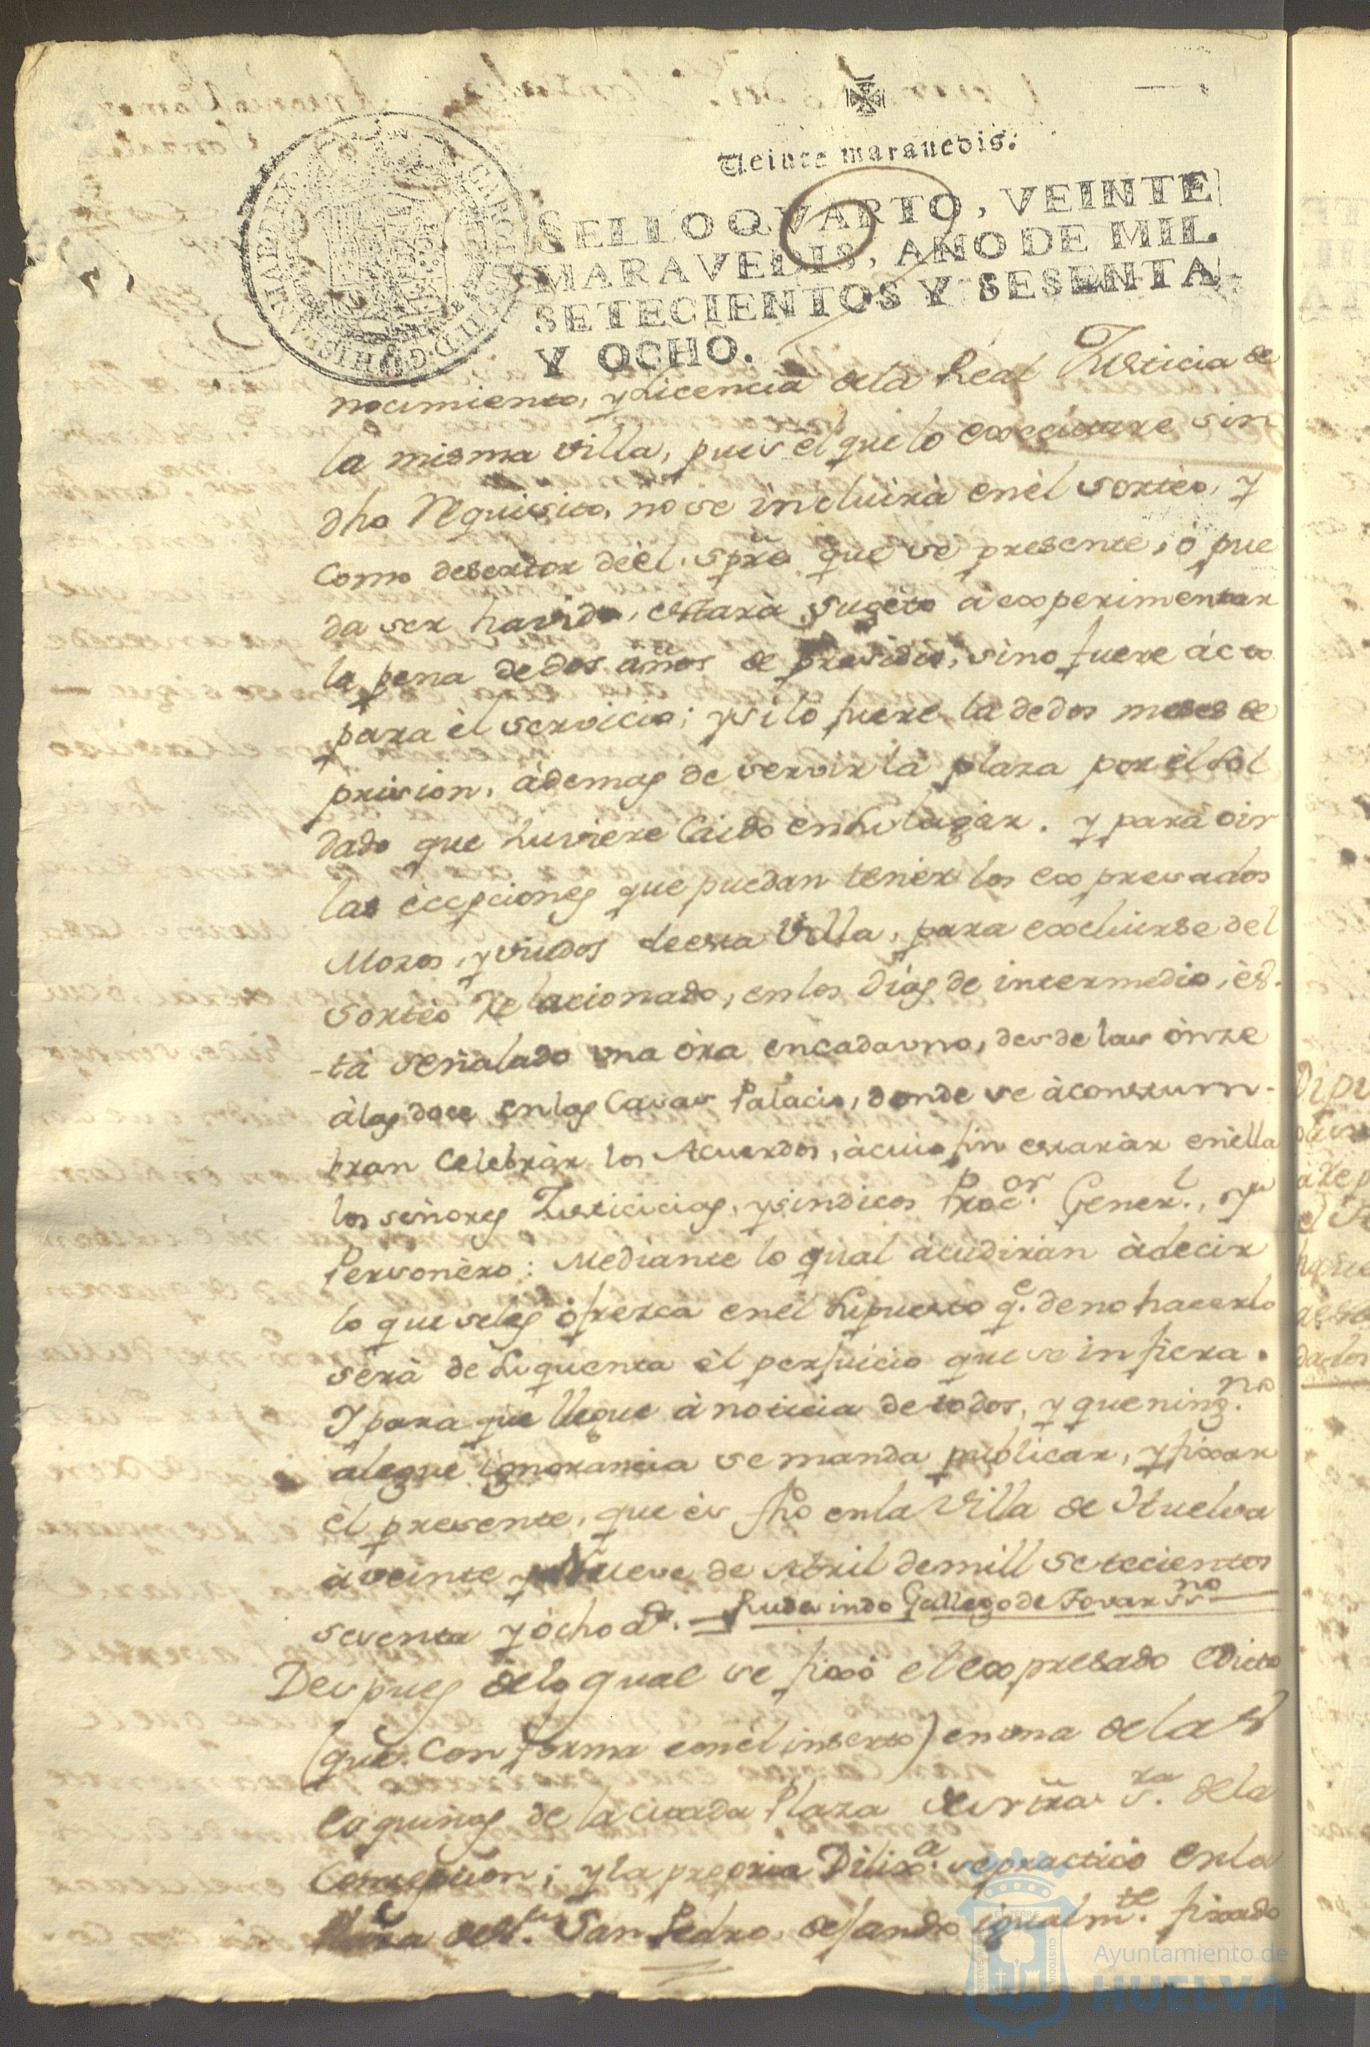 Veinte maravedis.
SELLO QVARTO, VEINTE
MARAVEDIS, AÑO DE MIL
SETECIENTOS Y SESENTA
Y OCHO.
nocimiento, y Licencia de la Real Justicia de
la misma villa, pues el que lo executare sin
dho Requisito, no se incluirà en èl sorteo, y
como desertor de èl, spre que se presente, ò pue
da ser havido, estarà sugeto à experimentar
la pena de dos años de presidio, sino fuere ácto
para èl servicio; y si lo fuere la de dos meses de
prision, àdemas de servir la plaza por èl Sol
dado que huviere Caido en su lugar. y para oir
las ècepciones que puedan tener los expresados
Mozos, y viudos de esta Villa, para excluirse del
sortèo Relacionado, en los Días de intermedio, ès-
-tà señalado una òra en cada uno, desde las ònze
à las doce en las Casas Palacio, donde se àcostum-
bran Celebràr los Acuerdos, à cuio fin estaràn en èlla
los señores Justicicias, y sindicos Procor. Generl., y
Personèro: Mediante lo qual àcudiràn à decir
lo que se les òfrezca en èl supuesto qe. de no hacerlo
serà de su quenta èl perjuicio que se infiera.
Y para que llegue à noticia de todos, y que ningno.
àlegue ignorancia se manda publicar, y fixar
èl presente, que ès fho en la Villa de Huelva
à veinte y Nueve de Abril de mill setecientos
sesenta y òcho as. — Rudesindo Gallego de Tovar ssno
Despues de lo qual se fixò el expresado Edicto
(que Conforma con èl inserto) en una de las
esquinas de la citada Plaza de ntra. Sra. de la
Concepcion; y la propria Dilixa. se practicò en la
de Sr. San Pedro, dejando igualmte. fixado
Ayuntamiento de
HUELVA